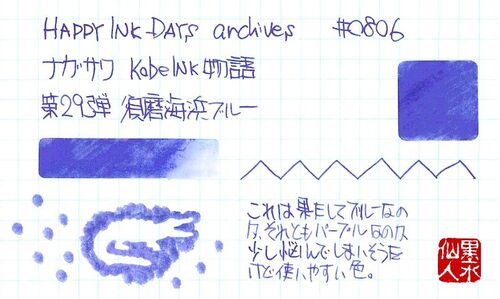 HAPPY INK DAYS archives #0806
ナガサワ Kobe INK物語
第29弾 須磨海浜ブルー
これは果たしてブルーなの
か、それともパープルなのか
少し悩んでしまいそうだ
けど使いやすい色。
墨水
仙人